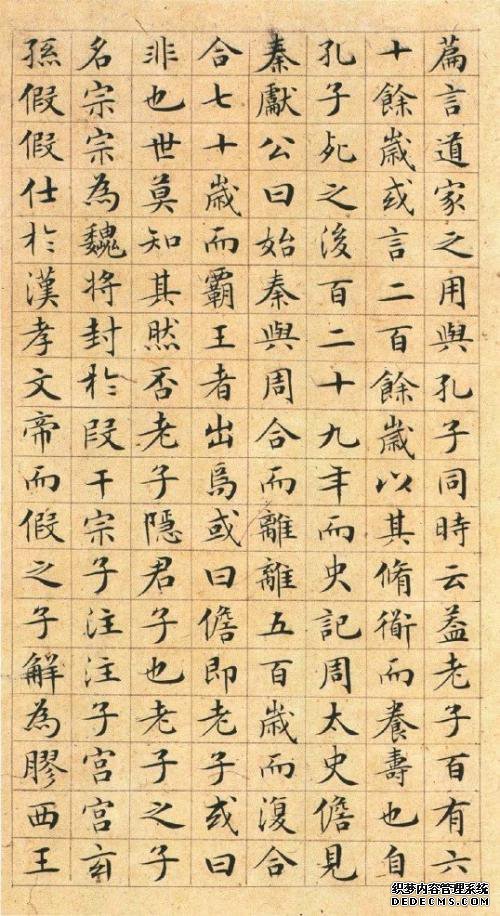 篇言道家之用與孔子同時云葢老子百有六
十餘歲或言二百餘歲以其脩衜而養壽也自
孔子死之後百二十九年而史記周太史儋見
秦獻公曰始秦與周合而離離五百歲而復合
合七十歲而霸王者出焉或曰儋即老子或曰
非也世莫知其然否老子隱君子也老子之子
名宗宗為魏將封於段干宗子注注子宮宮玄
孫假假仕於漢孝文帝而假之子解為膠西王
织梦内容管理系统
DEDECMS.COM